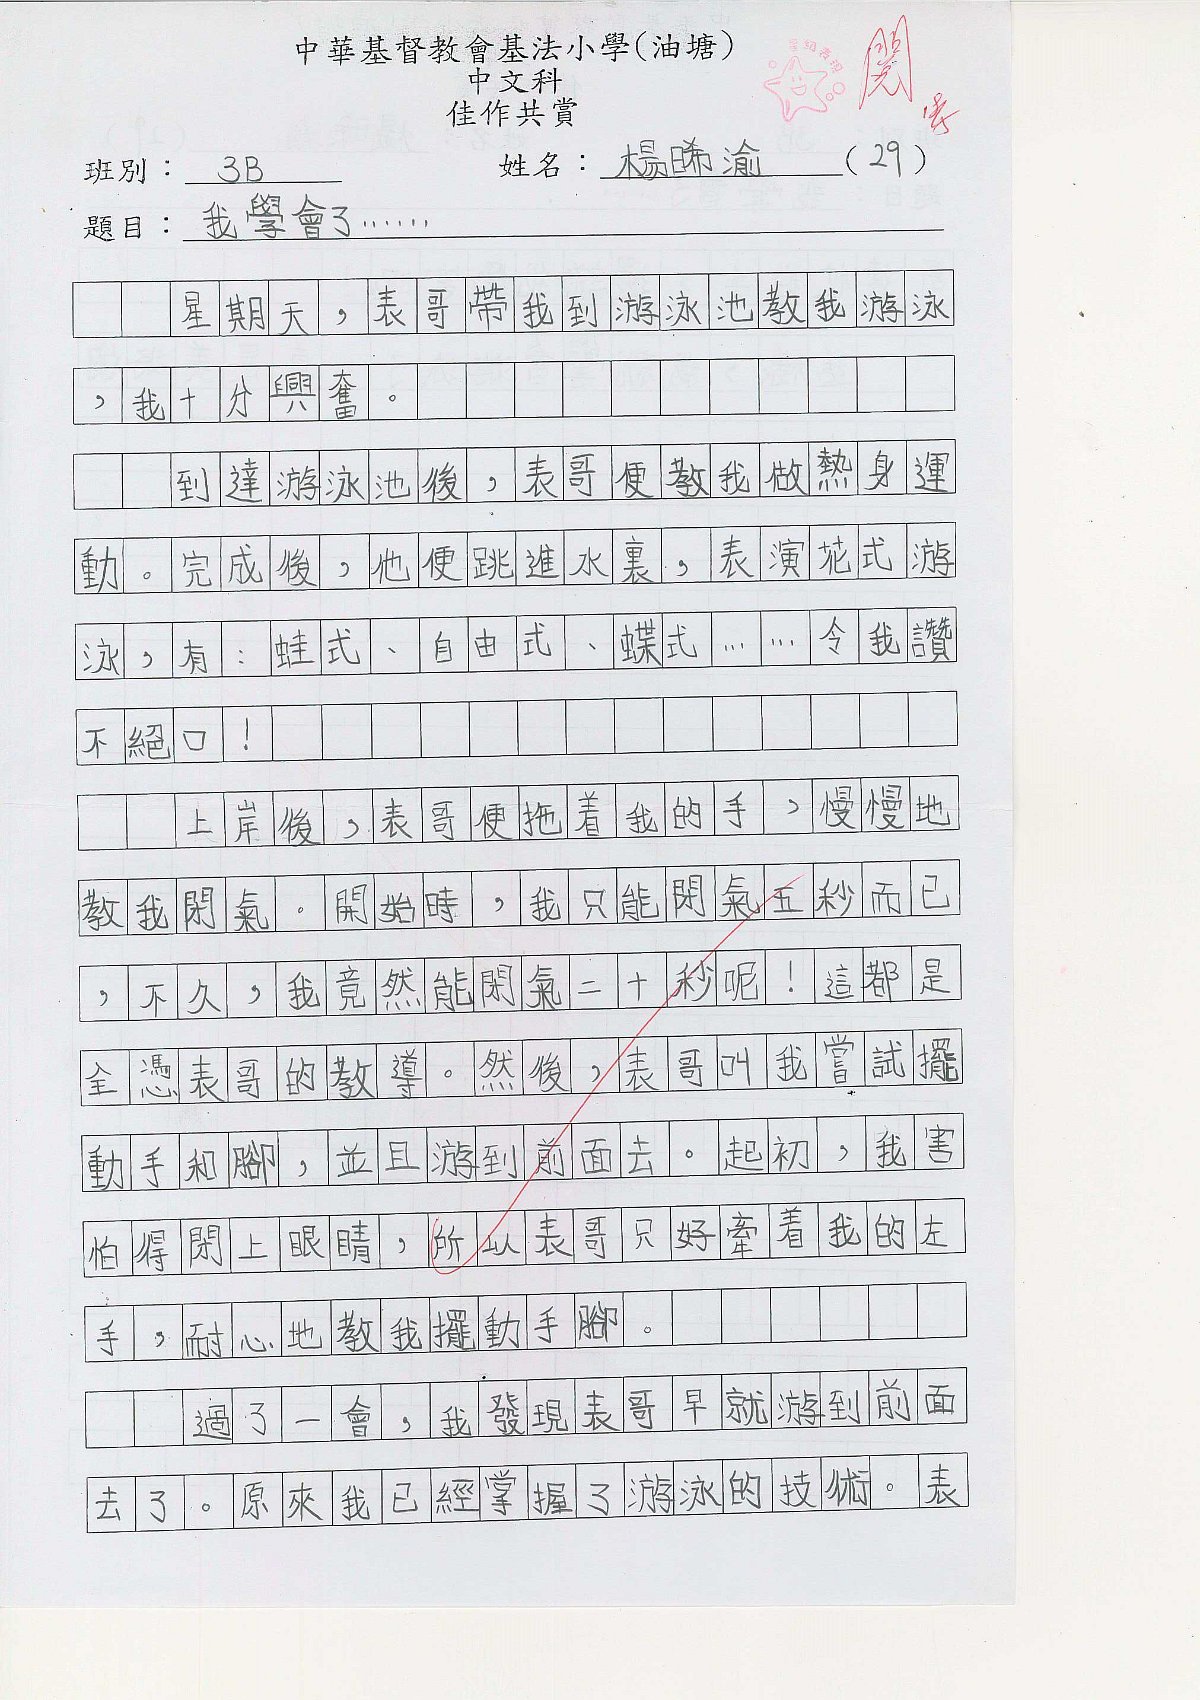 中華基督教會基法小學(油塘)
中文科
佳作共賞
閱
班別： 3B 姓名： 楊晞渝 (29)
題目： 我學會了……
星期天，表哥帶我到游泳池教我游泳
，我十分興奮。
到達游泳池後，表哥便教我做熱身運
動。完成後，他便跳進水裏，表演花式游
泳，有：蛙式、自由式、蝶式……令我讚
不絕口！
上岸後，表哥便拖着我的手，慢慢地
教我閉氣。開始時，我只能閉氣五秒而已
，不久，我竟然能閉氣二十秒呢！這都是
全憑表哥的教導。然後，表哥叫我嘗試擺
動手和腳，並且游到前面去。起初，我害
怕得閉上眼睛，所以表哥只好牽着我的左
手，耐心地教我擺動手腳。
過了一會，我發現表哥早就游到前面
去了。原來我已經掌握了游泳的技術。表